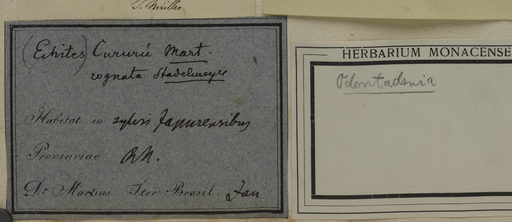 J. Müller.
(Echites) Cururú Mart.
cognata Stadelmeyer
Habitat in sylvis Japurensibus
Provinciae R.N.
Dr Martius Iter Brasil. Jan
HERBARIUM MONACENSE
Odontadenia